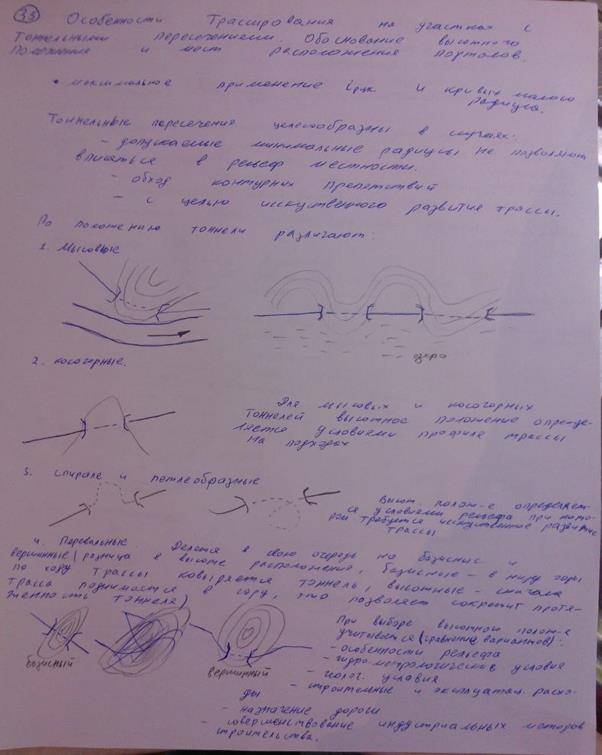 33 Особенности Трассирования на участках с
тоннельными пересечениями. Обоснование высотного
положения и мест расположения порталов.
• максимальное применение iрук и кривых малого
радиуса.
Тоннельные пересечения целесообразны в случаях:
- допускаемые минимальные радиусы не позволяют
вписаться в рельеф местности.
- обход контурных препятствий
- с целью искуственного развития трассы.
По положению тоннели различают:
1. Мысовые
озеро
2. косогорные.
Для мысовых и косогорных
тоннелей высотное положение опреде-
ляется условиями профиля трассы
на подходах
3. спирале и петлеобразные
Высот. полож-е определяет-
ся условиями рельефа при кото-
ром требуется искуственное развитие
трассы
4. Перевальные. Делятся в свою очередь на базисные и
вершинные (разница в высоте расположения, базисные - в низу горы
по ходу трассы ковыряется тоннель, высотные - сначала
трасса поднимается в гору, это позволяет сократить протя-
женность тоннеля)
базисный
вершинный
При выборе высотного полож-я
учитывается (сравнение вариантов):
- особенности рельефа
- гидро-метрологические условия
- геолог. условия
- строительные и эксплуатац. расхо-
ды
- назначение дороги
- совершенствование индустриальных методов
строительства.